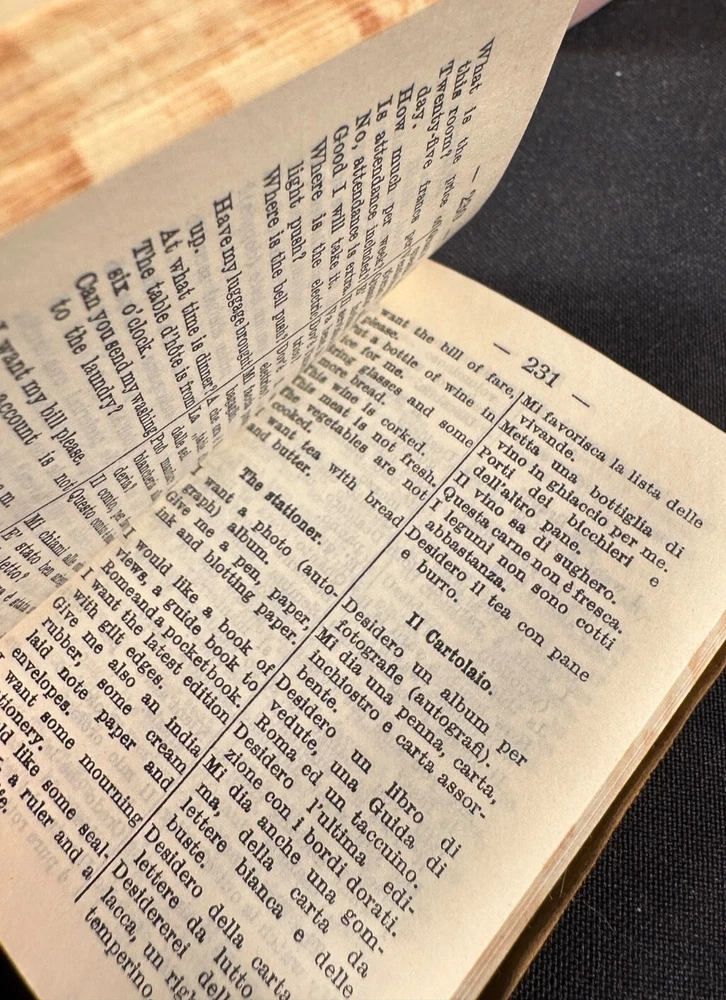 What is the price
this room?
Twenty-five francs per
day.
How much per week?
Is attendance included?
No, attendance is extra.
Good I will take it.
Where is the electric
light push?
Where is the bell push?
Have my luggage brought
up.
At what time is dinner?
The table d'hôte is from
six o'clock.
Can you send my washing
to the laundry?
want my bill please.
account is not
— 231 —
want the bill of fare,
please.
a bottle of wine in
ice for me.
glasses and some
more bread.
This wine is corked.
This meat is not fresh.
The vegetables are not
cooked.
I want tea with bread
and butter.
The stationer.
I want a photo (auto-
graph) album.
Give me a pen, paper,
ink and blotting paper.
I would like a book of
views, a guide book to
Rome and a pocket book.
I want the latest edition
with gilt edges.
Give me also an india
rubber, some cream
laid note paper and
envelopes.
want some mourning
like some seal-
a ruler and a
Mi favorisca la lista delle
vivande.
Metta una bottiglia di
vino in ghiaccio per me.
Porti dei bicchieri e
dell'altro pane.
Il vino sa di sughero.
Questa carne non è fresca.
I legumi non sono cotti
abbastanza.
Desidero il tea con pane
e burro.
Il Cartolaio.
Desidero un album per
fotografie (autografi).
Mi dia una penna, carta,
inchiostro e carta assor-
bente.
Desidero un libro di
vedute, una Guida di
Roma ed un taccuino.
Desidero l'ultima edi-
zione con i bordi dorati.
Mi dia anche una gom-
ma, della carta da
lettere bianca e delle
buste.
Desidero della carta
lettere da lutto
Desidererei
lacca, un
temperino,